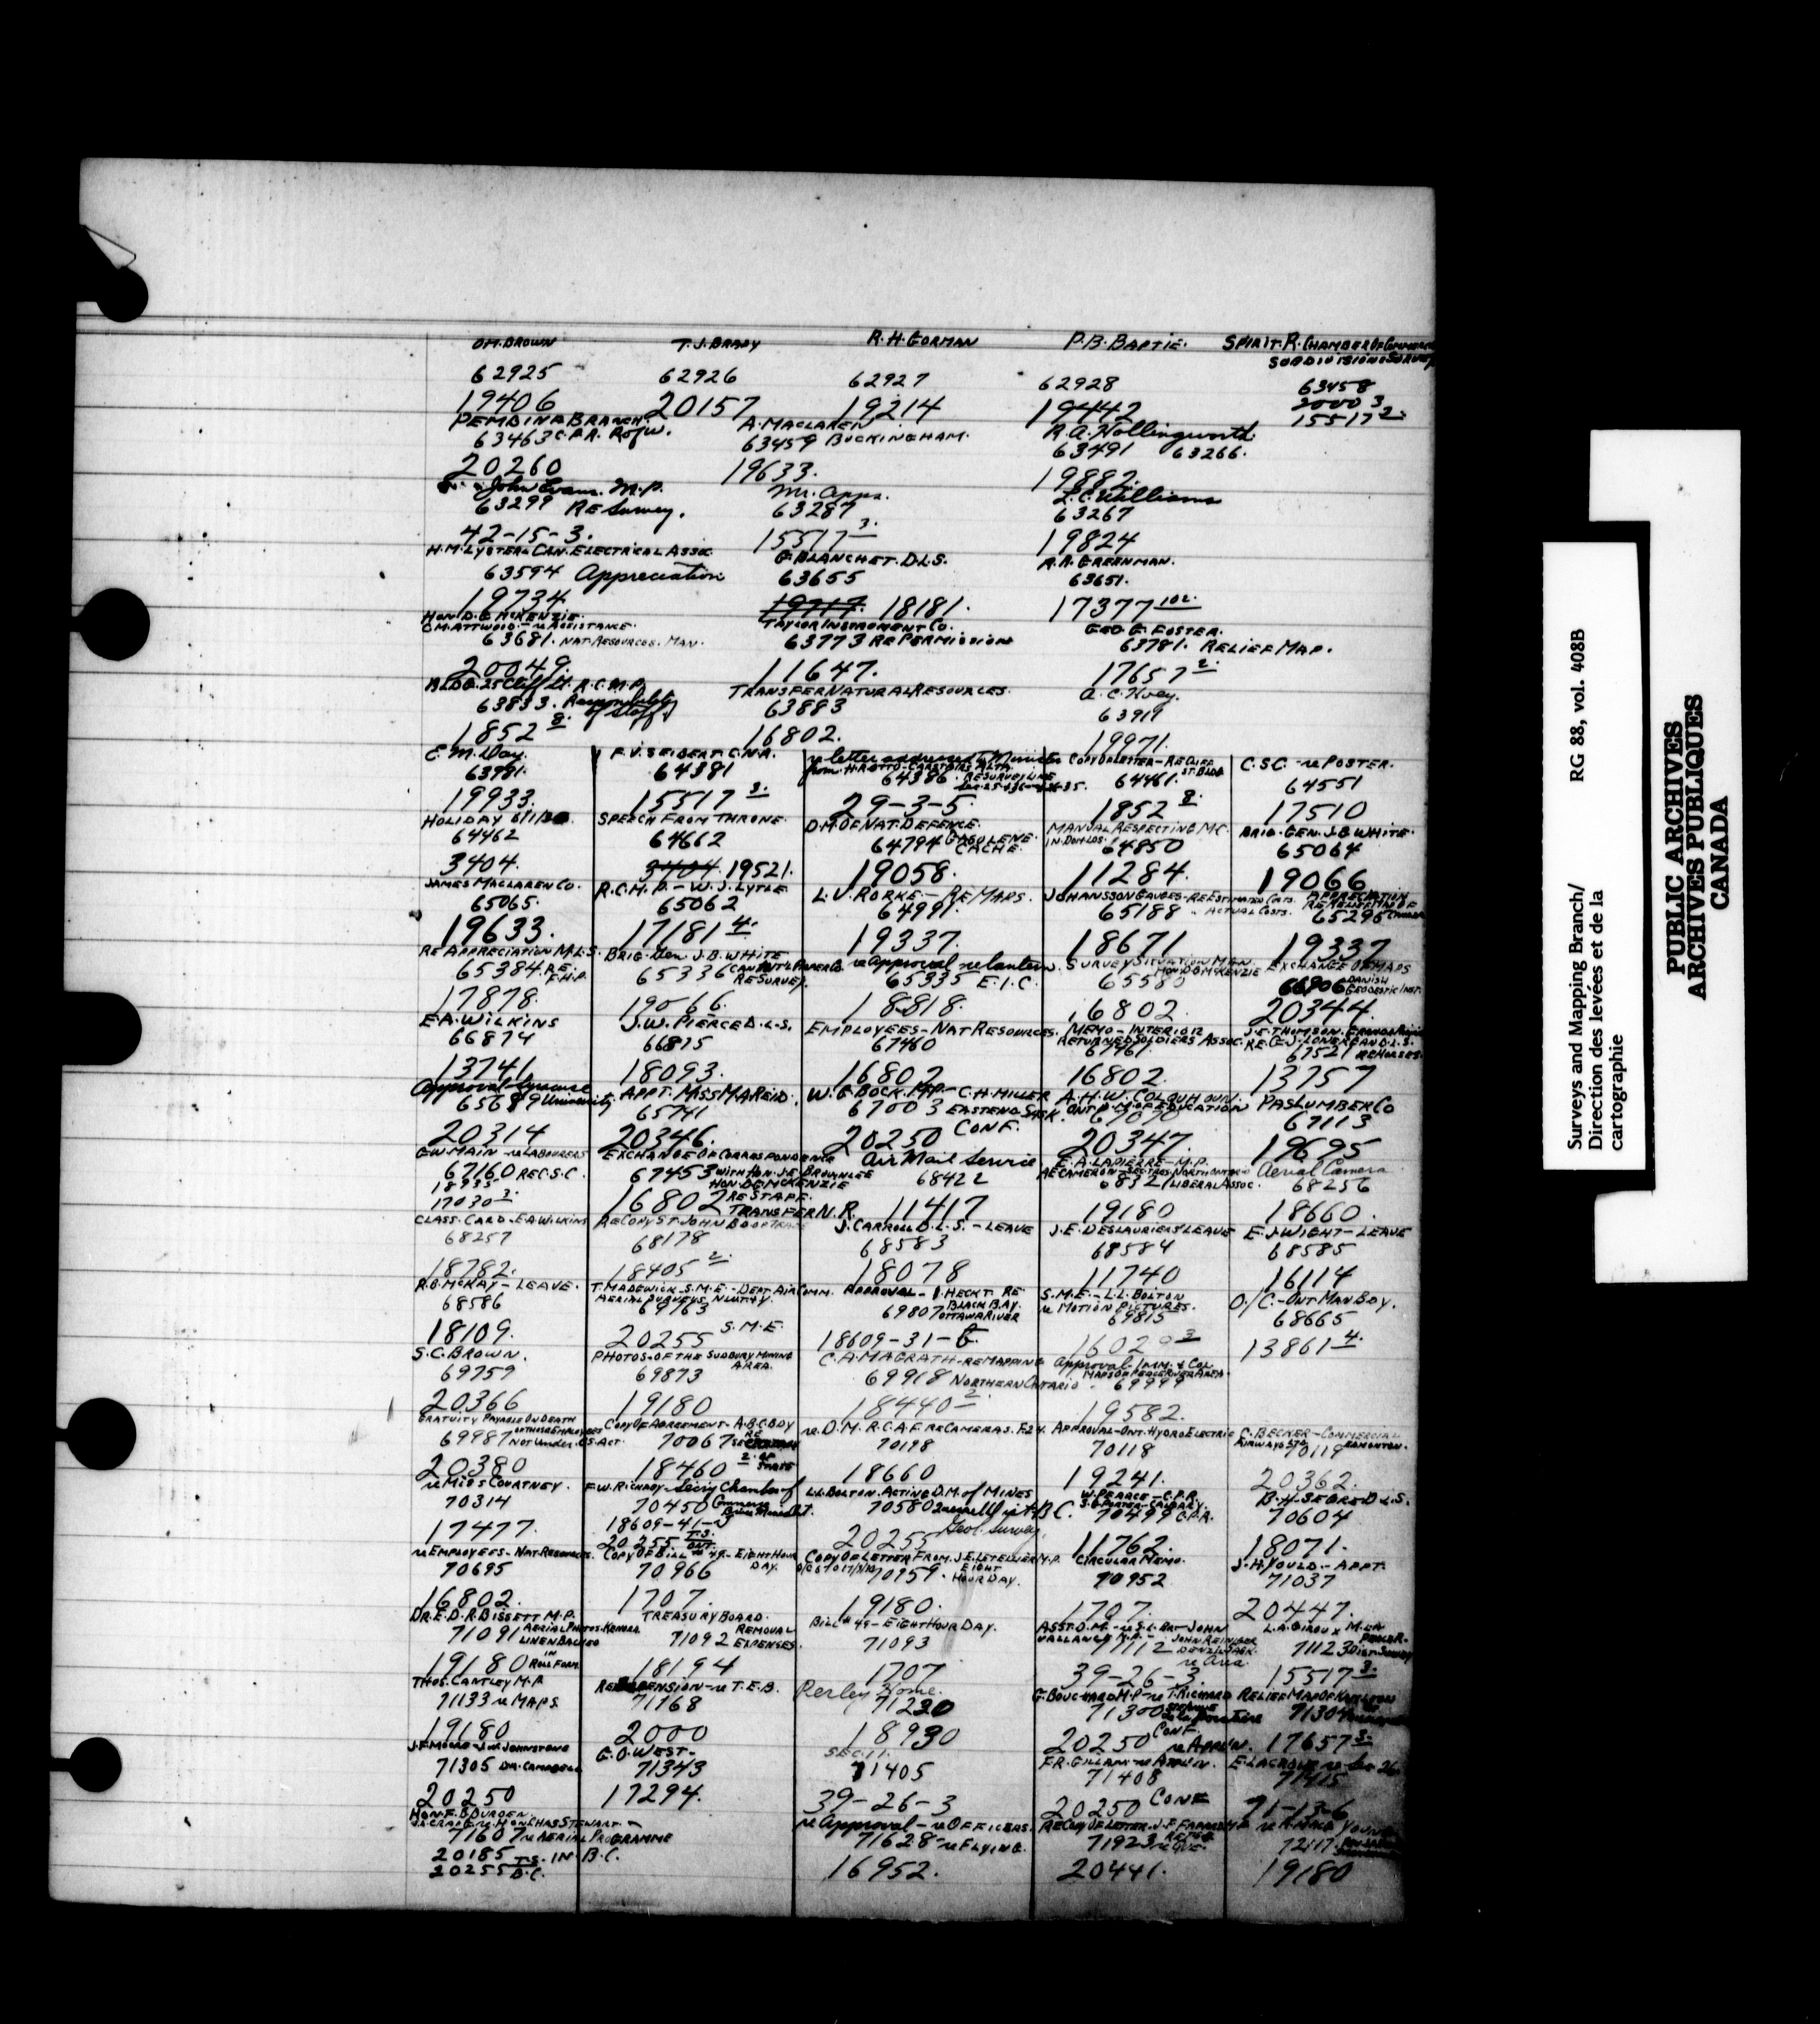 O.M. BROWN T.J. BRADY R.H. GORMAN P.B. BAPTIE. SPIRIT. R. CHAMBER OF COMMERCE
SUBDIVISION SURVEY
62925 62926 62927 62928 63458
19406 20157 19214 19442 20003
15517 2.
PEMBINA BRANCH. A. MACLAREN R.A. Hollingworth.
63463 C.P.R. R of W. 63459 BUCKINGHAM. 63491 63266.
20260 19633. 19882.
John Evans. M.P. Mr. Apps. L.C. Williams
63299 RE Survey. 63287 63267
42-15-3. 15517 3. 19824
H.M. LYSTER & CAN. ELECTRICAL ASSOC. G. BLANCHET. D.L.S. A.R. GREENMAN.
63594 Appreciation 63655 63651.
19734 18181. 17377 102.
HON. D.G. MCKENZIE. TAYLOR INSTRUMENT CO. GEO G. FOSTER.
D.M. ATTWOOD. - re ASSISTANCE.
63681. NAT. RESOURCES. MAN. 63773 RE PERMISSION 63781. RELIEF MAP.
20049. 11647. 17657 2.
BLDG. 25 Cliff St. R.C.M.P. TRANSFER NATURAL RESOURCES. A.C. Hoey.
63833. Responsibility of Staff 63883 63919
1852 8. 16802. 19971.
E.M. Day. F.V. SEIBERT. C.N.R. re letter addressed to Minister COPY OF LETTER - RE CLIFF ST. BLDG C.S.C. re POSTER.
from H.A. OTTO - CARSTAIRS ALTA.
63991. 64381 64386. RESURVEY LINE 64461. 64551
19933. 15517 3. 29-3-5. 1852 8. 17510
HOLIDAY 6/1/30. SPEECH FROM THRONE. D.M. OF NAT. DEFENCE. MANUAL RESPECTING M.C. BRIG. GEN. J.B. WHITE.
64462 64662 64794 GASOLENE CACHE. IN DOM. LDS. 64850 65064
3404. 19521. 19058. 11284. 19066
JAMES MACLAREN CO. R.C.M.P. - W.J. LYTLE L.V. RORKE - RE MAPS. JOHANSSON GAUGES - RE ESTIMATED COSTS. APPRECIATION
65065. 65062 64991. 65188 - ACTUAL COSTS. RE RELIEF MAP OF CANADA 65296
19633. 17181 4. 19337. 18671 19337
RE APPRECIATION M.L.S. BRIG. Gen J.B. WHITE re Approval re lantern. SURVEY SITUATION MAN. EXCHANGE OF MAPS
65384. RE. F.H.P. 65336 CAN INT'L PAPER CO. RE SURVEY. 65335 E.I.C. HON D.G. MCKENZIE 65580 66906 DANISH GEODETIC INST.
17878. 19066. 18818. 16802. 20344.
E.A. WILKINS J.W. PIERCE D.L.S. EMPLOYEES - NAT RESOURCES. MEMO - INTERIOR J.E. THOMSON. GRANDE PRAIRIE
RETURNED SOLDIERS ASSOC. RE. C.J. LONERGAN D.L.S.
66874 66875 67460 67461. 67521 RE HORSES.
13741 18093. 16802 16802. 13757
Approval Syracuse APPT. MISS M.A. REID. W.G. BOCK. M.P. - C.H. MILLER A.H.W. COLQUHOUN. PAS LUMBER CO
65689 University 65741 67003 EASTEND SASK. ONT D.M. OF EDUCATION 67070 67113
20314 20346. 20250 CONF. 20347. 19695
G.W. MAIN - re LABOURERS EXCHANGE OF CORRESPONDENCE Air Mail Service E.A. LAPIERRE - M.P. Aerial Camera
67160 REC. S.C. 67453 WITH HON. J.E. BROWNLEE 68422 AE CAMERON - SEC-TREAS. NORTH ONTARIO 68321 LIBERAL ASSOC. 68256
18935 HON. D.G. MCKENZIE
17030 3. 16802 RE STAFF. TRANSFER N.R. 11417 19180 18660.
CLASS. CARD - E.A. WILKINS RE COPY ST. JOHN BOOM TRACT J. CARROLL D.L.S. - LEAVE J.E. DESLAURIERS LEAVE E.J. WIGHT - LEAVE
68257 68178 68583 68584 68585
18782. 18405 2. 18078 11740 16114
R.B. MCKAY - LEAVE. T. MADGWICK S.M.E. - DEPT. AIR COMM. APPROVAL - J. HECKT RE S.M.E. - L.L. BOLTON O/C. - ONT MAN BDY.
AERIAL SURVEYS
68586 69763 69807 BLACK BAY. OTTAWA RIVER re MOTION PICTURES. 69815 68665
18109. 20255 S.M.E. 18609-31- 16020 3 13861 4.
S.C. BROWN. PHOTOS - OF THE SUDBURY MINING AREA. C.A. MAGRATH - RE MAPPING Approval - IMM. & COL.
69759 69873 69918 NORTHERN ONTARIO. MAPS OF PEACE RIVER AREA. 69999
20366 19180 18440 2. 19582.
GRATUITY PAYABLE ON DEATH COPY OF AGREEMENT - A.B.C. BDY re. D.M. R.C.A.F. RE CAMERAS. F24. APPROVAL - ONT. HYDRO ELECTRIC C. BECKER - COMMERCIAL
69987 OF THOSE EMPLOYEES NOT Under. CS. ACT. 70067 70198 70118 AIRWAYS LTD 70119 EDMONTON.
20380 18460 2. 18660 19241. 20362.
re MISS COURTNEY. F.W. RICHARD - Sec'y Chamber of L.L. BOLTON. ACTING D.M. of MINES W. PEARCE - C.P.R. B.H. SEGRE D.L.S.
70314 70450 Commerce 70580 S.G. PORTER - CALGARY. 70499 C.P.R. 70604
17477. 18609-41- 20255 Geol. Survey. 11762. 18071.
20255 T.S. ONT.
re EMPLOYEES - NAT. RESOURCES. COPY OF BILL # 49. - EIGHT HOUR DAY. COPY OF LETTER FROM. J.E. LETELLIER M.P. CIRCULAR MEMO. J.H. YOULD. - APPT.
70695 70966 70959. EIGHT HOUR DAY. 70952 71037
16802. 1707. 19180. 1707. 20447.
DR. E.D.R. BISSETT M.P. TREASURY BOARD. BILL # 49 - EIGHT HOUR DAY. ASST. D.M. - JOHN VALLANCE M.P. - L.A. GIROUX M.L.A.
71091 AERIAL PHOTOS - KENORA LINEN BACKED 71092 REMOVAL EXPENSES. 71093 71112 JOHN REINIGER DENZIL SASK. re Area. 71123 PEACE R. DIST. Survey
19180 IN ROLL FORM 18194 1707 39-26-3. 15517 3.
THOS. CANTLEY M.P. RE SUSPENSION - re T.E.B. Perley Home. G. BOUCHARD M.P. re T. RICHARD RELIEF MAP OF HAMILTON
71133 re MAPS 71168 71220 71300 71304
19180 2000 18930 20250 CONF. re APPL'N. 17657 3.
J.F. MOORE - J.W. JOHNSTONE G.O. WEST - SEC. 11. F.R. GILLAM - re APPL'N. E. LACROIX re Sec 26.
71305 DR. CAMPBELL 71343 71405 71408 71415
20250 17294. 39-26-3 20250 CONF 71-13-6
HON. F.B. BURDEN. re Approval - re OFFICERS. RE COPY OF LETTER. J.F.
J.A. CRAIG re. HON. CHAS STEWART
71607 re AERIAL PROGRAMME 71628 - re FLYING. 71923 72117.
20185 T.S. IN B.C. 16952. 20441. 19180
20255 B.C.
Surveys and Mapping Branch/ RG 88, vol. 408B
Direction des levées et de la
cartographie
PUBLIC ARCHIVES
ARCHIVES PUBLIQUES
CANADA